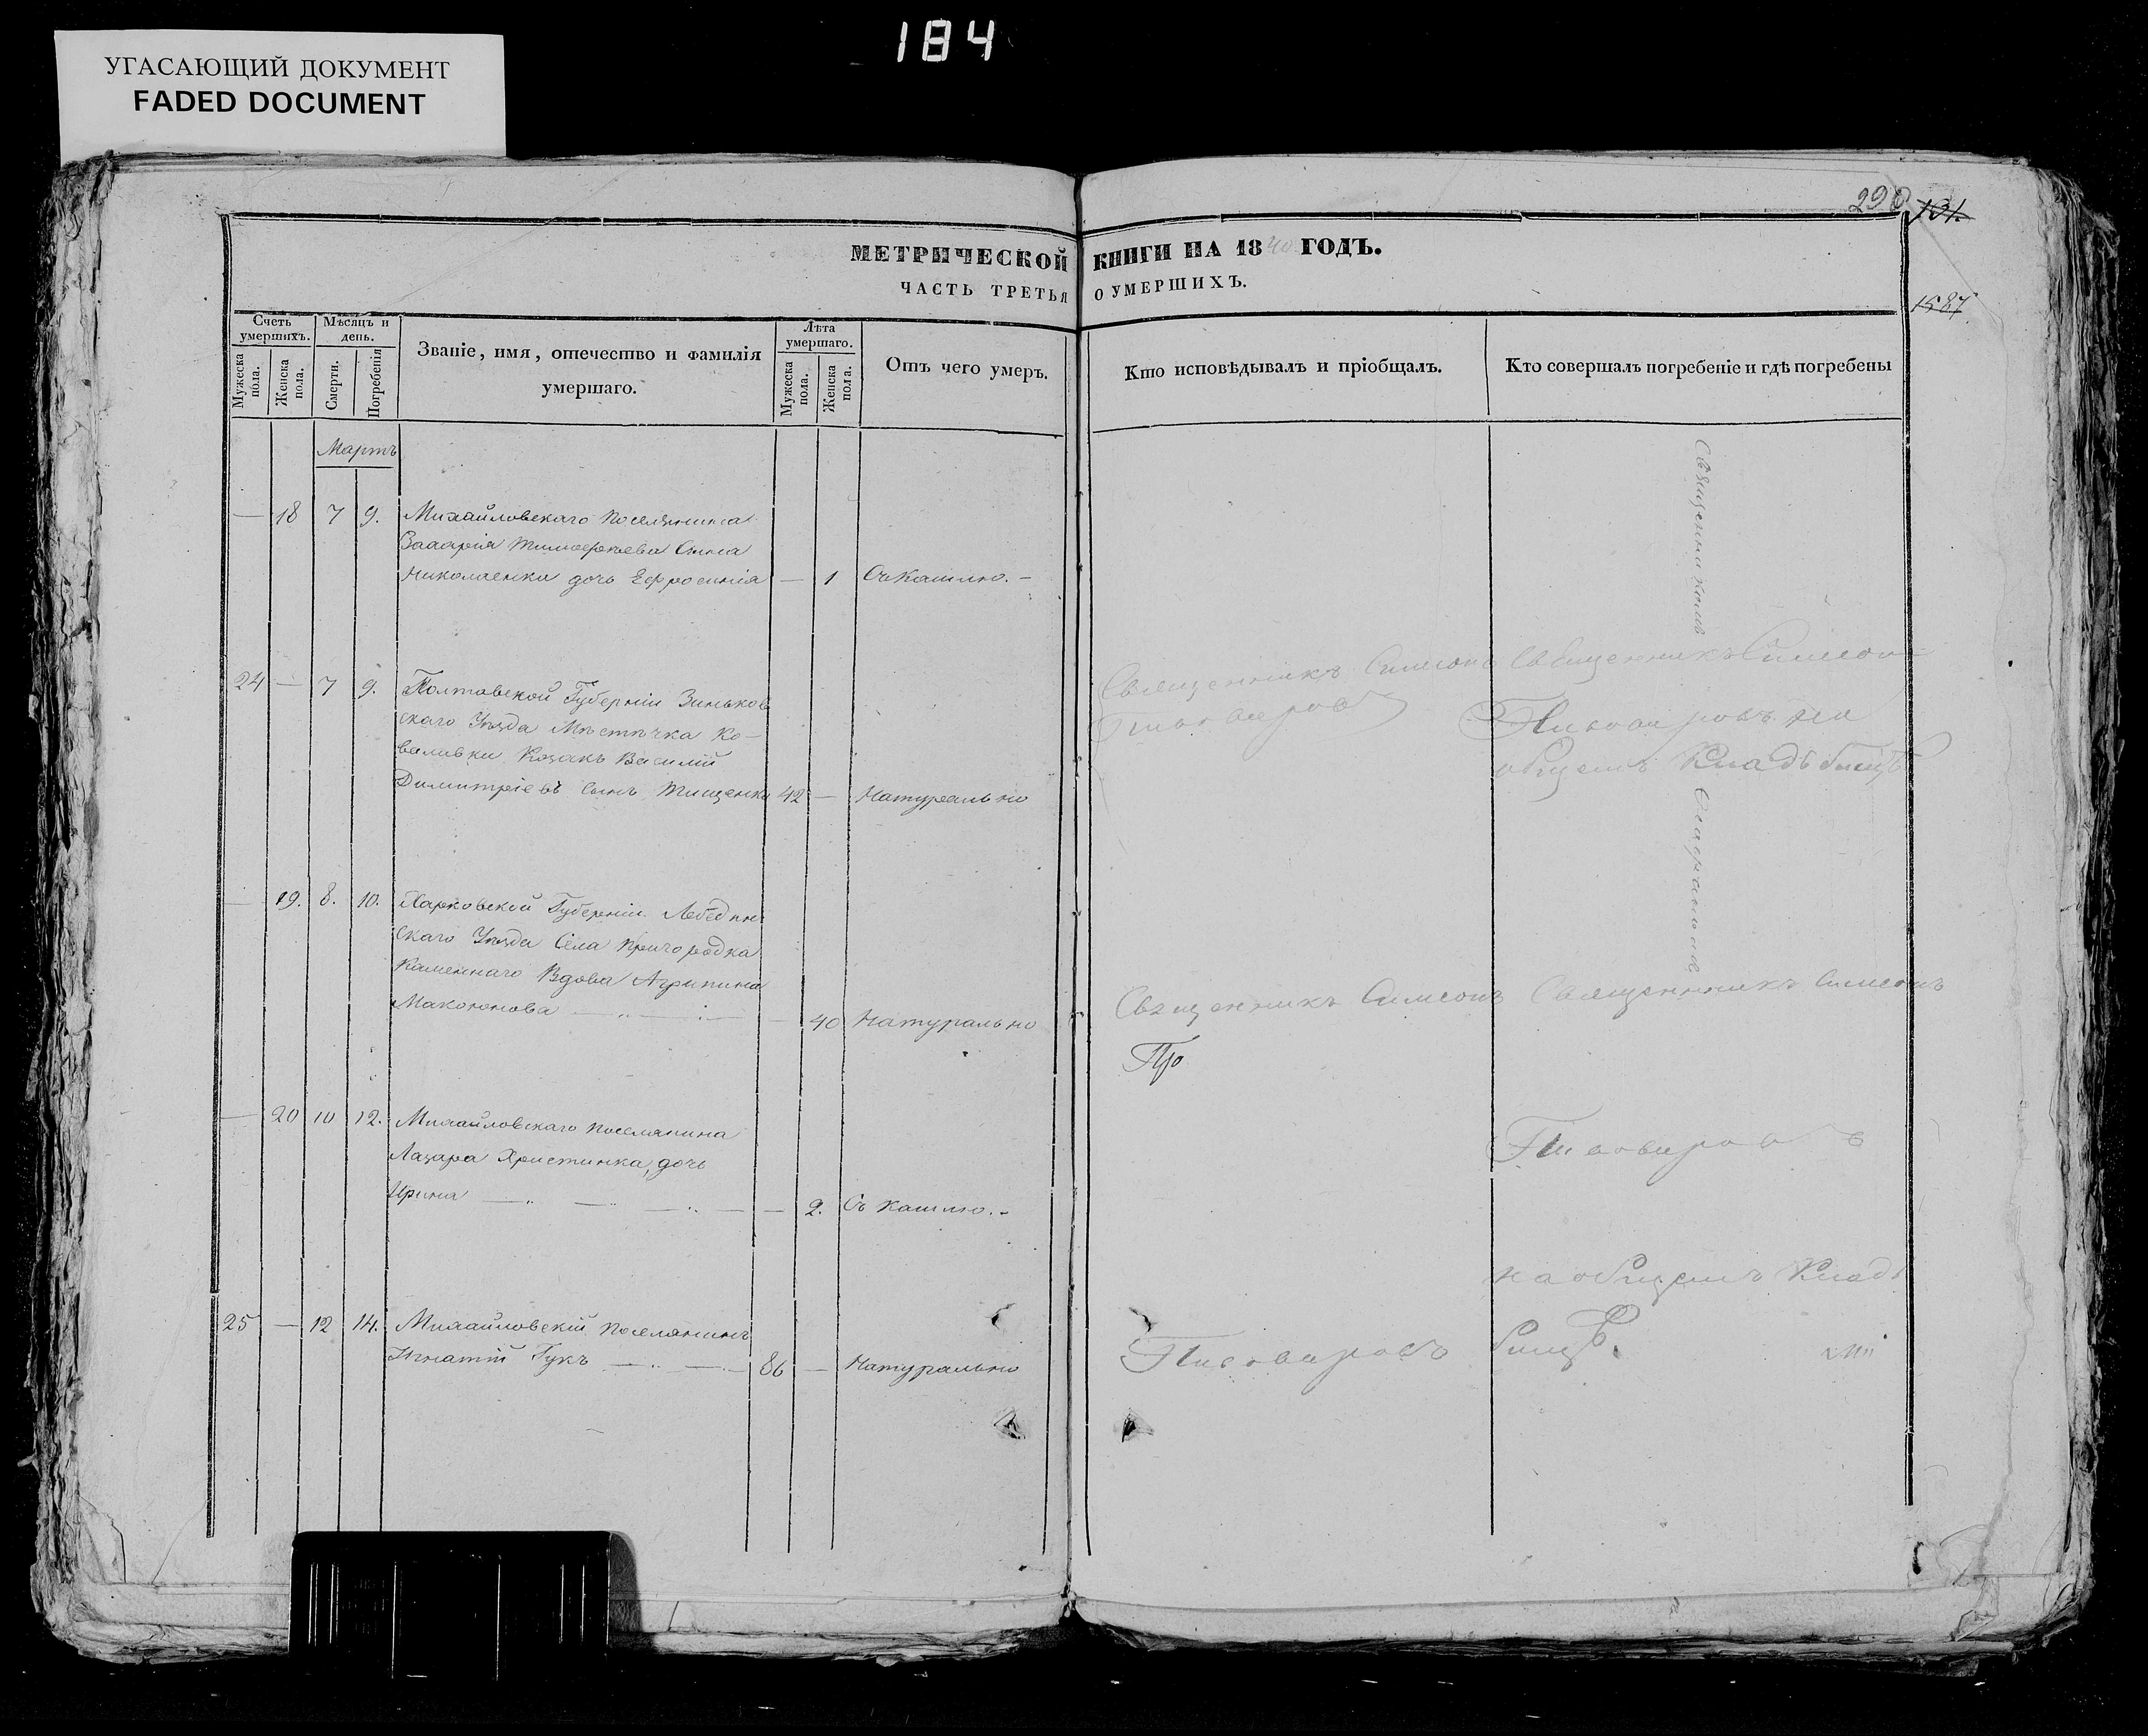 184
УГАСАЮЩИЙ ДОКУМЕНТ
FADED DOCUMENT
290 131.
МЕТРИЧЕСКОЙ КНИГИ НА 1840 ГОДЪ.
ЧАСТЬ ТРЕТЬЯ О УМЕРШИХЪ.
1587
Счетъ умершихъ.
Мужеска пола.
Женска пола.
Мѣсяцъ и день.
Смерти.
Погребенія
Званіе, имя, отечество и фамилія
умершаго.
Лѣта умершаго.
Мужеска пола.
Женска пола.
Отъ чего умеръ.
Кто исповѣдывалъ и пріобщалъ.
Кто совершалъ погребеніе и гдѣ погребены
Мартъ
— 18 7 9. Михайловскаго поселянина
Захарія Тимофѣева сына
Николаенки дочь Ефросинія — 1 Съ кашлю. —
24 — 7 9. Полтавской Губерніи Зиньков
скаго Уѣзда Мѣстечка Ко—
валивки Козакъ Василій
Димитріевъ сынъ Тищенко 42 — Натурально
Священникъ Симеонъ
Священникъ Симеон
на
общемъ Кладбищѣ
— 19. 8. 10. Харковской Губерніи Лебедин
скаго Уѣзда Села Пригородка
Каменнаго Вдова Агрипина
Макогонова — 40 Натурально
Священникъ Симеонъ
Про
Священникъ Симеонъ
— 20 10 12. Михайловскаго поселянина
Лазаря Христинка, дочь
Ирина — 2. Съ кашлю. -
на общемъ Клад
бищѣ.
25 — 12 14. Михайловскій поселянинъ
Игнатій Гукъ 86 — Натурально
Священникомъ